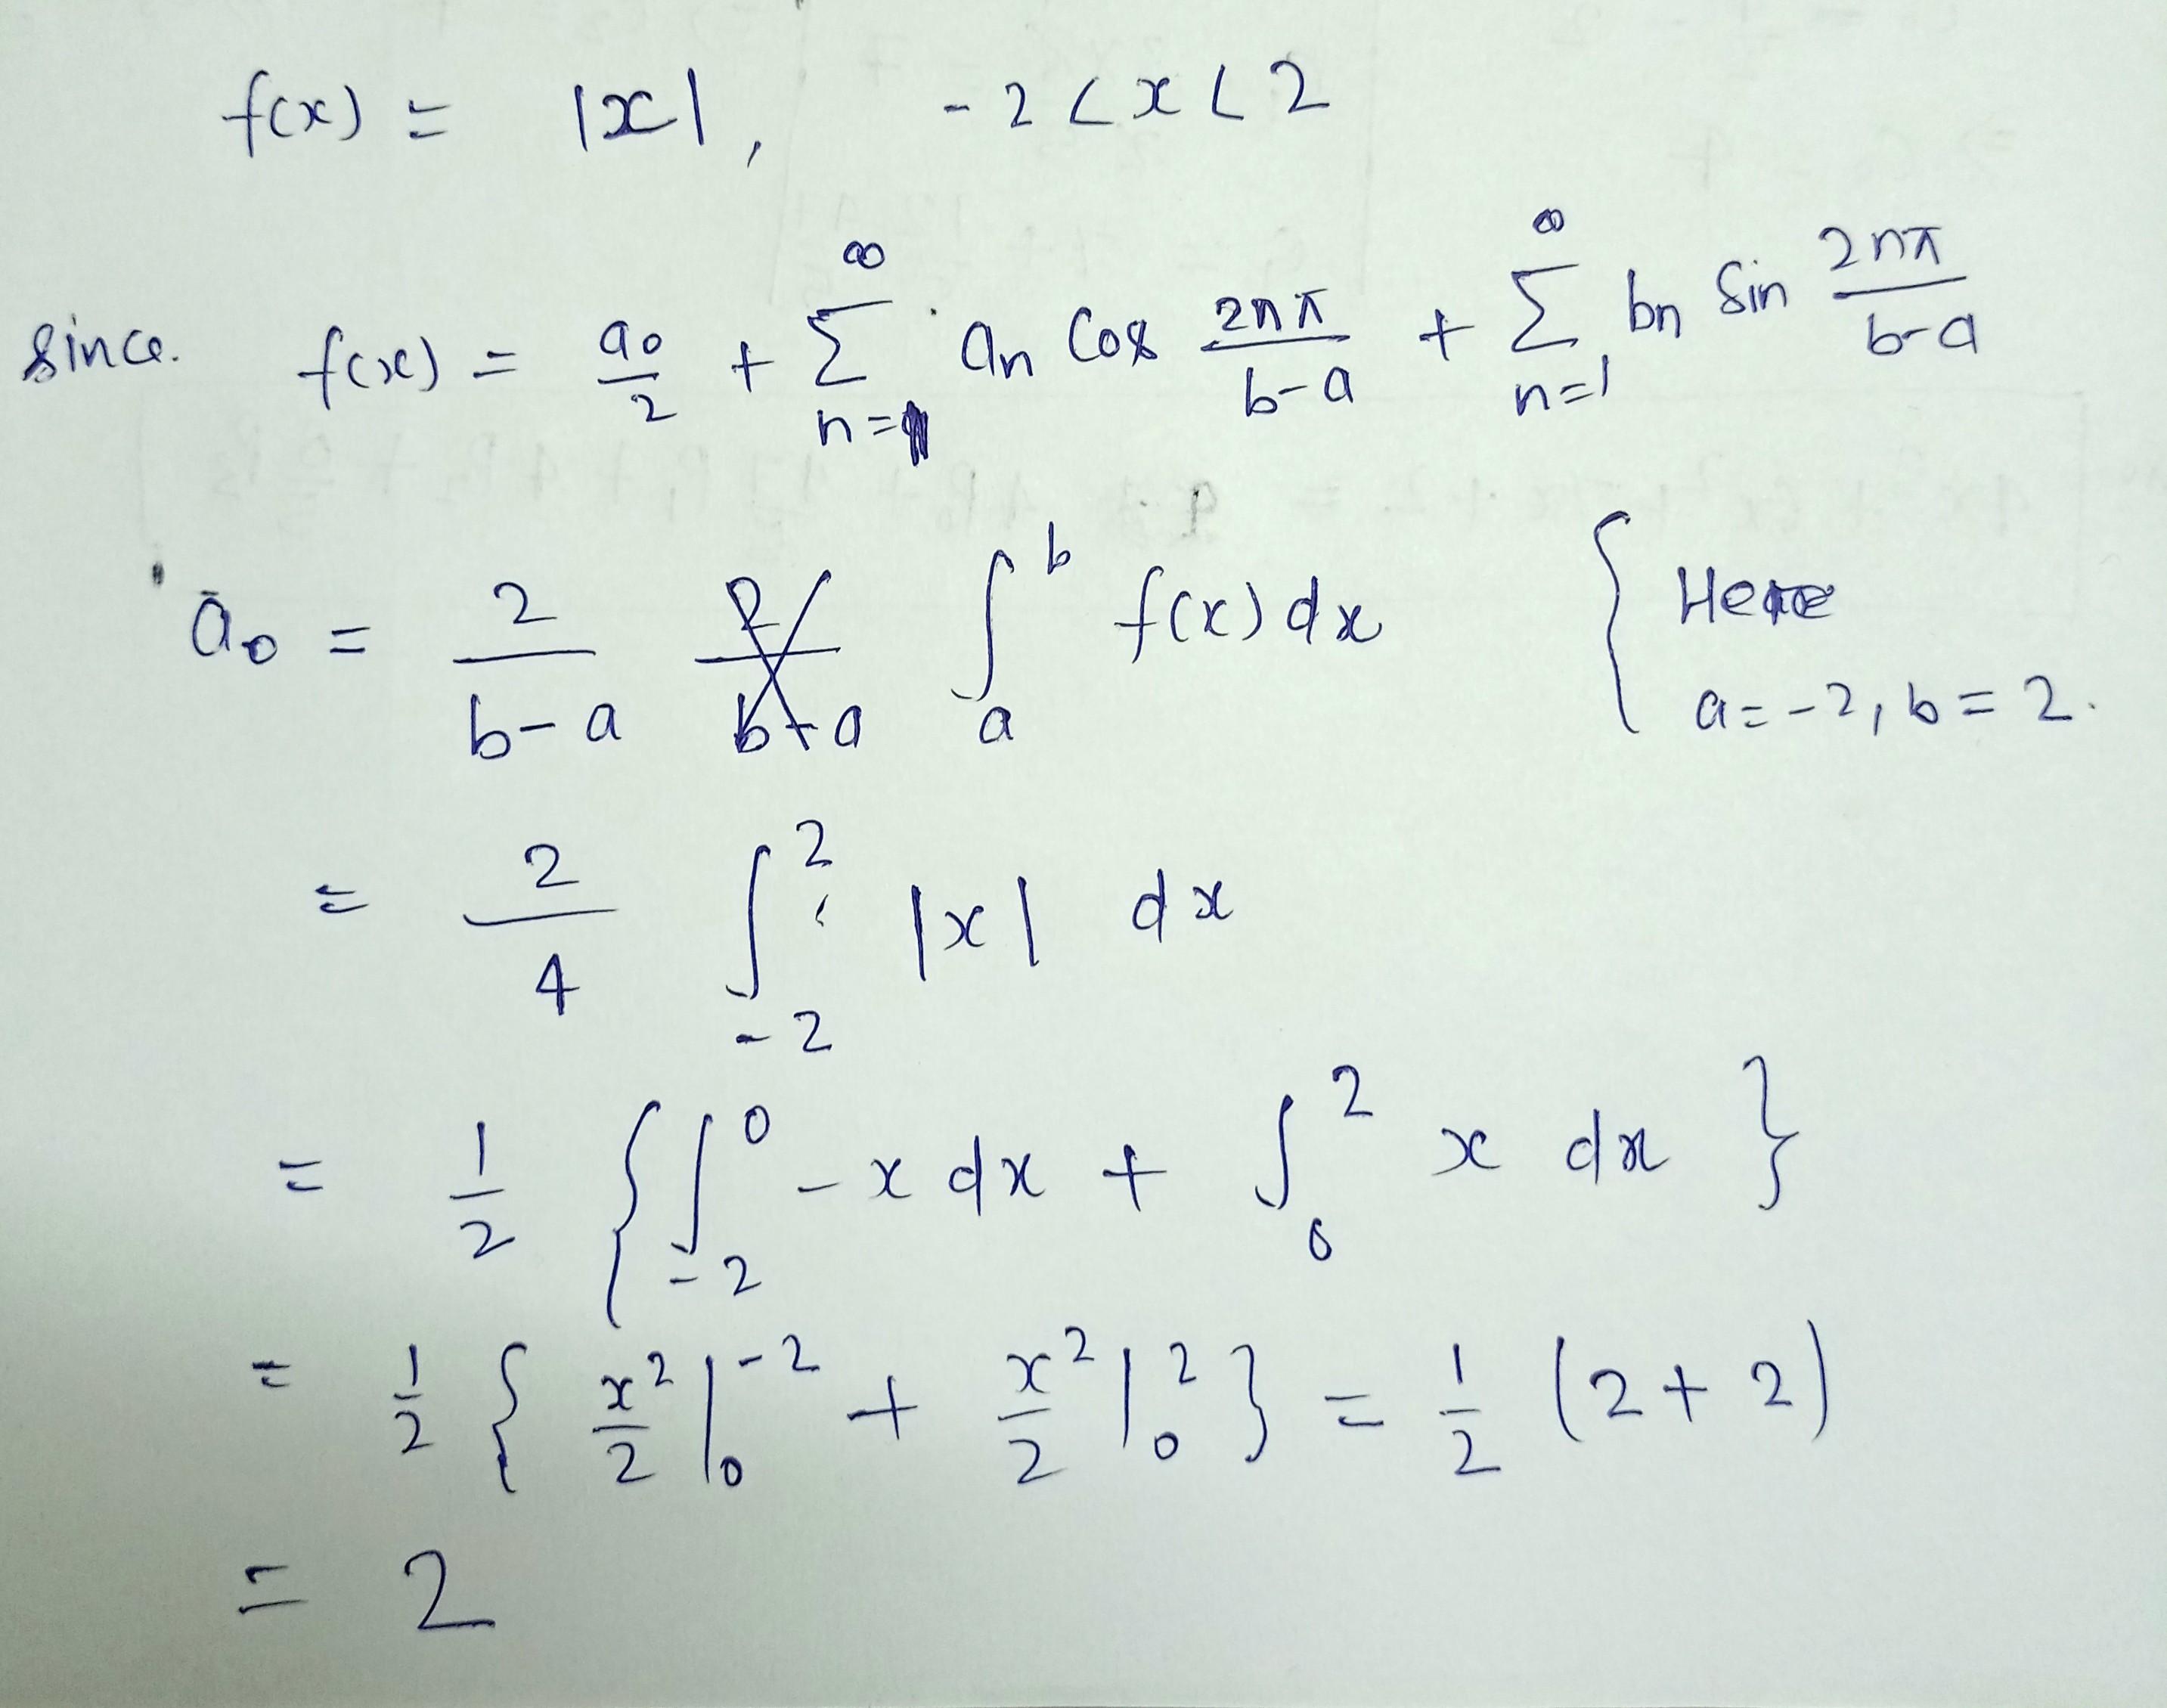 f(x) = |x|, -2 < x < 2
since. f(x) = a₀/2 + ∑_{n=1}^{∞} aₙ cos 2nπ/(b-a) + ∑_{n=1}^{∞} bₙ sin 2nπ/(b-a)
a₀ = 2/(b-a) ∫_a^b f(x) dx { Here
a = -2, b = 2.
= 2/4 ∫_{-2}^{2} |x| dx
= 1/2 { ∫_{-2}^{0} -x dx + ∫_0^2 x dx }
= 1/2 { x²/2 |_0^{-2} + x²/2 |_0^2 } = 1/2 (2+2)
= 2